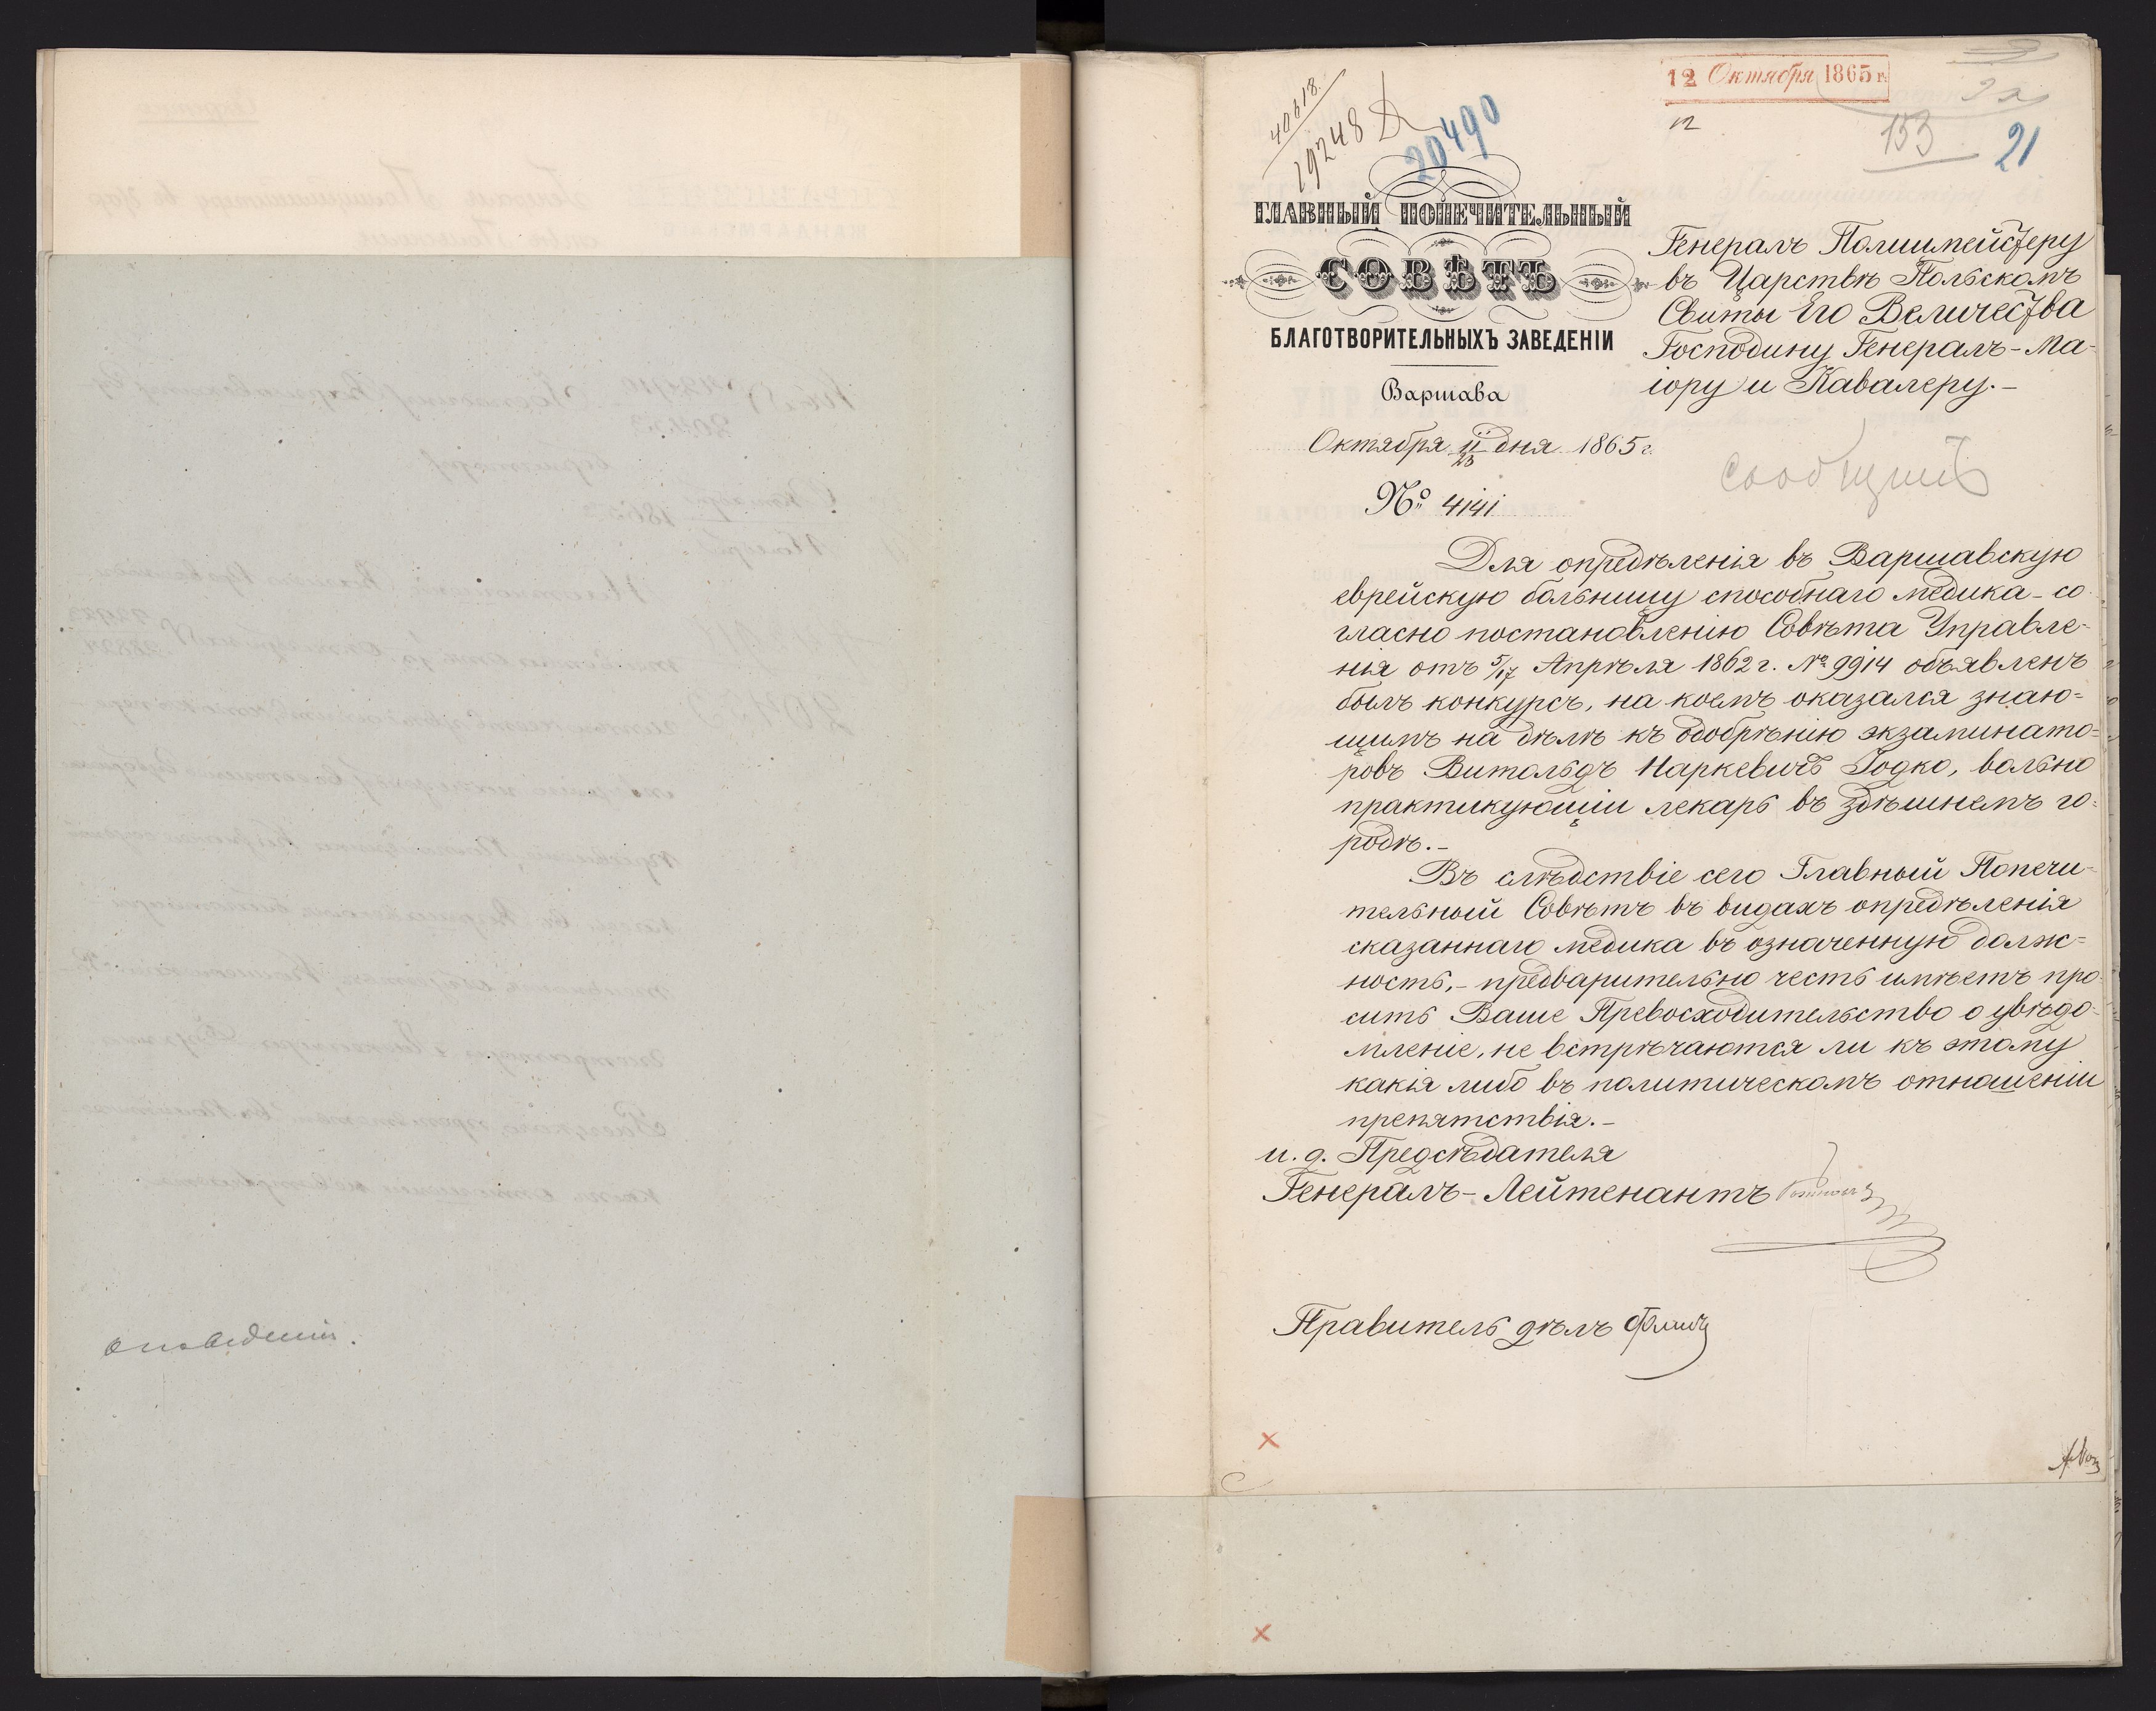 о поведении.
12 Октября 1865 г.
40618.
19248
20490
153
21
ГЛАВНЫЙ ПОПЕЧИТЕЛЬНЫЙ
СОВѢТЪ
БЛАГОТВОРИТЕЛЬНЫХЪ ЗАВЕДЕНІЙ
Варшава
Октября 11/23 дня 1865 г.
№ 4141
Генералъ Полицмейстеру
въ Царствѣ Польскомъ
Свиты Его Величества
Господину Генералъ-Ма-
іору и Кавалеру.-
сообщить
Для опредѣленія въ Варшавскую
еврейскую больницу способнаго медика - со
гласно постановленію Совѣта Управле-
нія отъ 5/17 Апрѣля 1862 г. № 9914 объявленъ
былъ конкурсъ, на коемъ оказался знаю-
щимъ на дѣлѣ къ одобрѣнію экзаминато-
ровъ Витольдъ Наркевичъ Іодко, вольно
практикующій лекарь въ здѣшнемъ го-
родѣ.-
Въ слѣдствіе сего Главный Попечи-
тельный Совѣтъ въ видахъ опредѣленія
сказаннаго медика въ означенную долж-
ность,- предварительно честь имѣетъ про
сить Ваше Превосходительство о увѣдо-
мленіе, не встрѣчаются ли къ этому
какія либо въ политическомъ отношеніи
препятствія.-
и. д. Предсѣдателя
Генералъ-Лейтенантъ
Правитель дѣлъ